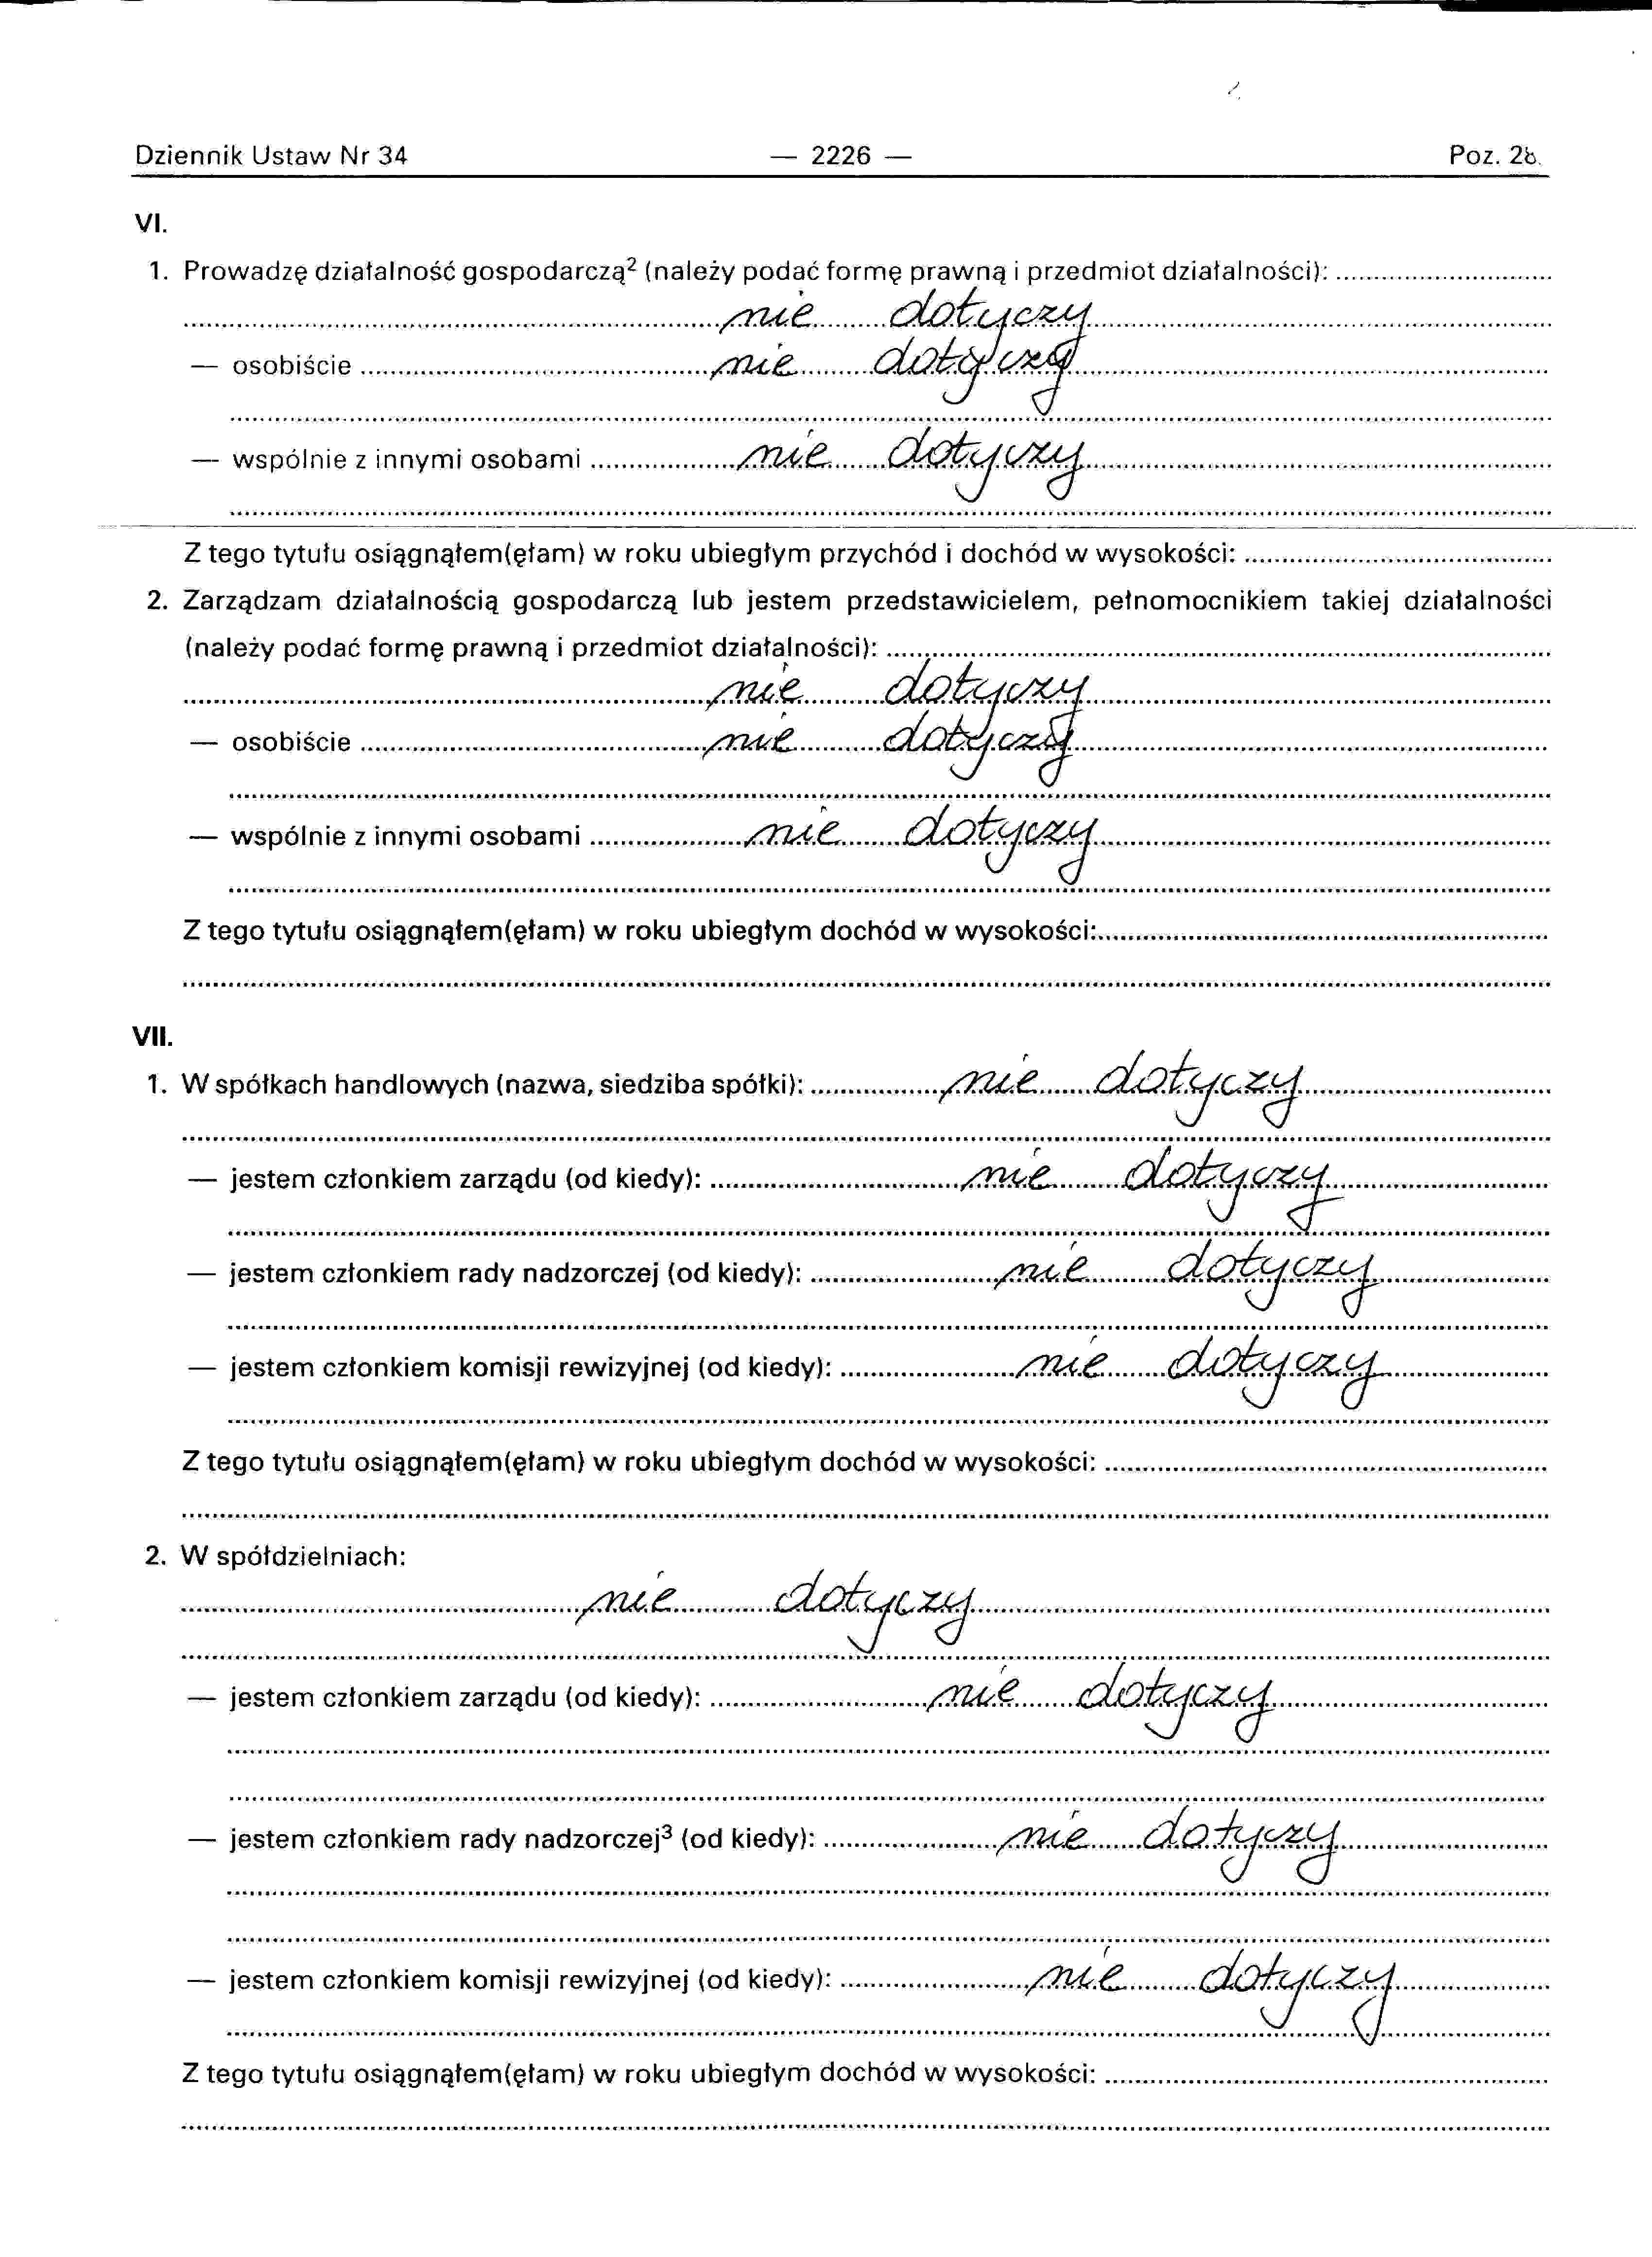 Dziennik Ustaw Nr 34 — 2226 — Poz.
VI.
1. Prowadzę działalność gospodarczą² (należy podać formę prawną i przedmiot działalności):
nie dotyczy
— osobiście nie dotyczy
— wspólnie z innymi osobami nie dotyczy
Z tego tytułu osiągnąłem(ęłam) w roku ubiegłym przychód i dochód w wysokości:
2. Zarządzam działalnością gospodarczą lub jestem przedstawicielem, pełnomocnikiem takiej działalności
(należy podać formę prawną i przedmiot działalności):
nie dotyczy
— osobiście nie dotyczy
— wspólnie z innymi osobami nie dotyczy
Z tego tytułu osiągnąłem(ęłam) w roku ubiegłym dochód w wysokości:
VII.
1. W spółkach handlowych (nazwa, siedziba spółki): nie dotyczy
— jestem członkiem zarządu (od kiedy): nie dotyczy
— jestem członkiem rady nadzorczej (od kiedy): nie dotyczy
— jestem członkiem komisji rewizyjnej (od kiedy): nie dotyczy
Z tego tytułu osiągnąłem(ęłam) w roku ubiegłym dochód w wysokości:
2. W spółdzielniach:
nie dotyczy
— jestem członkiem zarządu (od kiedy): nie dotyczy
— jestem członkiem rady nadzorczej³ (od kiedy): nie dotyczy
— jestem członkiem komisji rewizyjnej (od kiedy): nie dotyczy
Z tego tytułu osiągnąłem(ęłam) w roku ubiegłym dochód w wysokości: